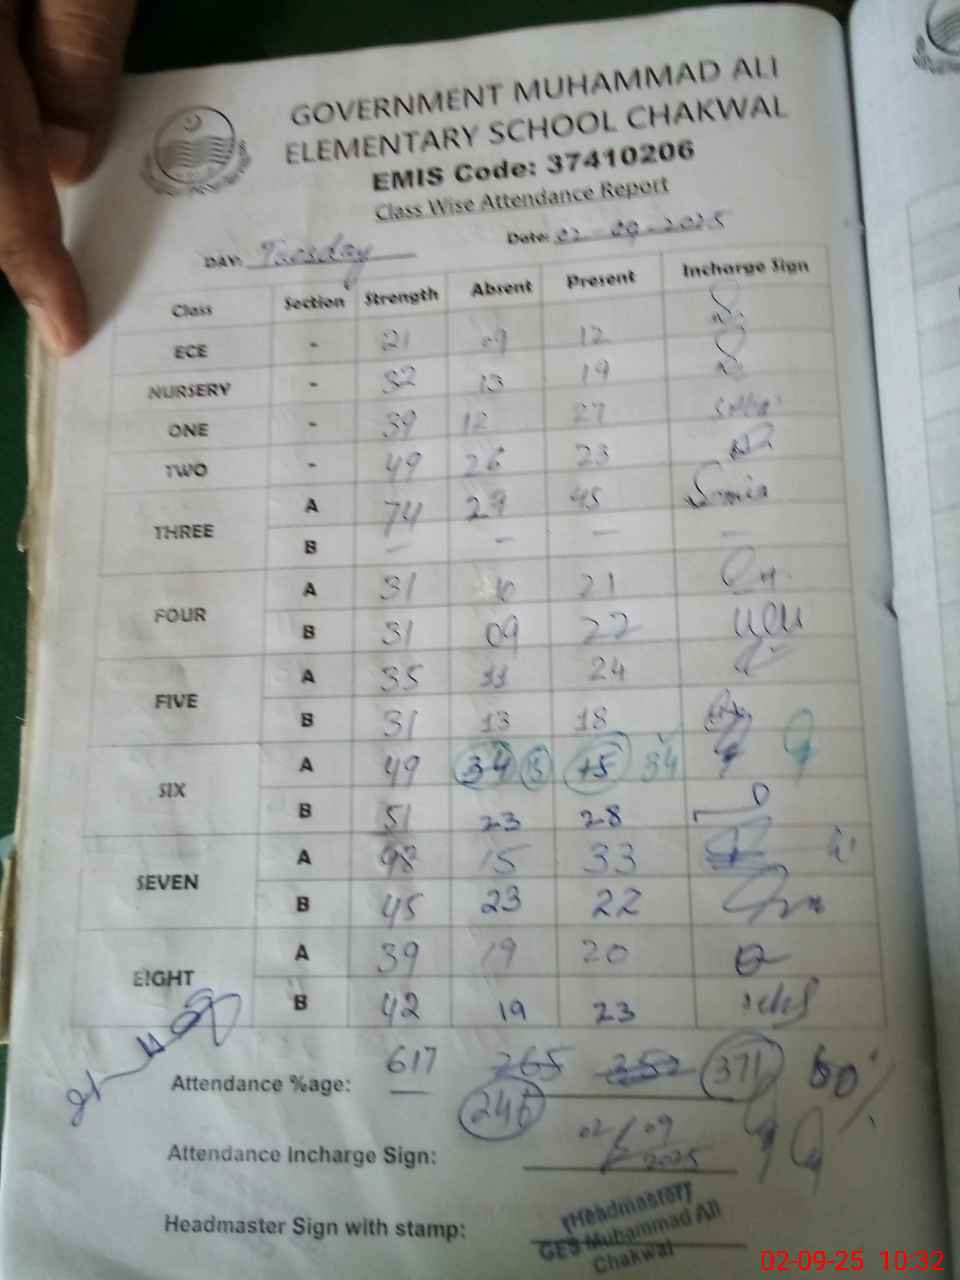 GOVERNMENT MUHAMMAD ALI
ELEMENTARY SCHOOL CHAKWAL
EMIS Code: 37410206
Class Wise Attendance Report
DAY: Tuesday Date: 02-09-2025
Class Section Strength Absent Present Incharge Sign
ECE - 21 09 12
NURSERY - 32 13 19
ONE - 39 12 27
TWO - 49 26 23
THREE A 74 29 45 Somia
B - - - -
FOUR A 31 10 21
B 31 09 22
FIVE A 35 11 24
B 31 13 18
SIX A 49 34 15 34
B 51 23 28
SEVEN A 48 15 33
B 45 23 22
EIGHT A 39 19 20
B 42 19 23
Attendance %age: 617 265 352 371 60%
246
Attendance Incharge Sign: 02/09
2025
Headmaster Sign with stamp:
Headmaster
GES Muhammad Ali
Chakwal
02-09-25 10:32